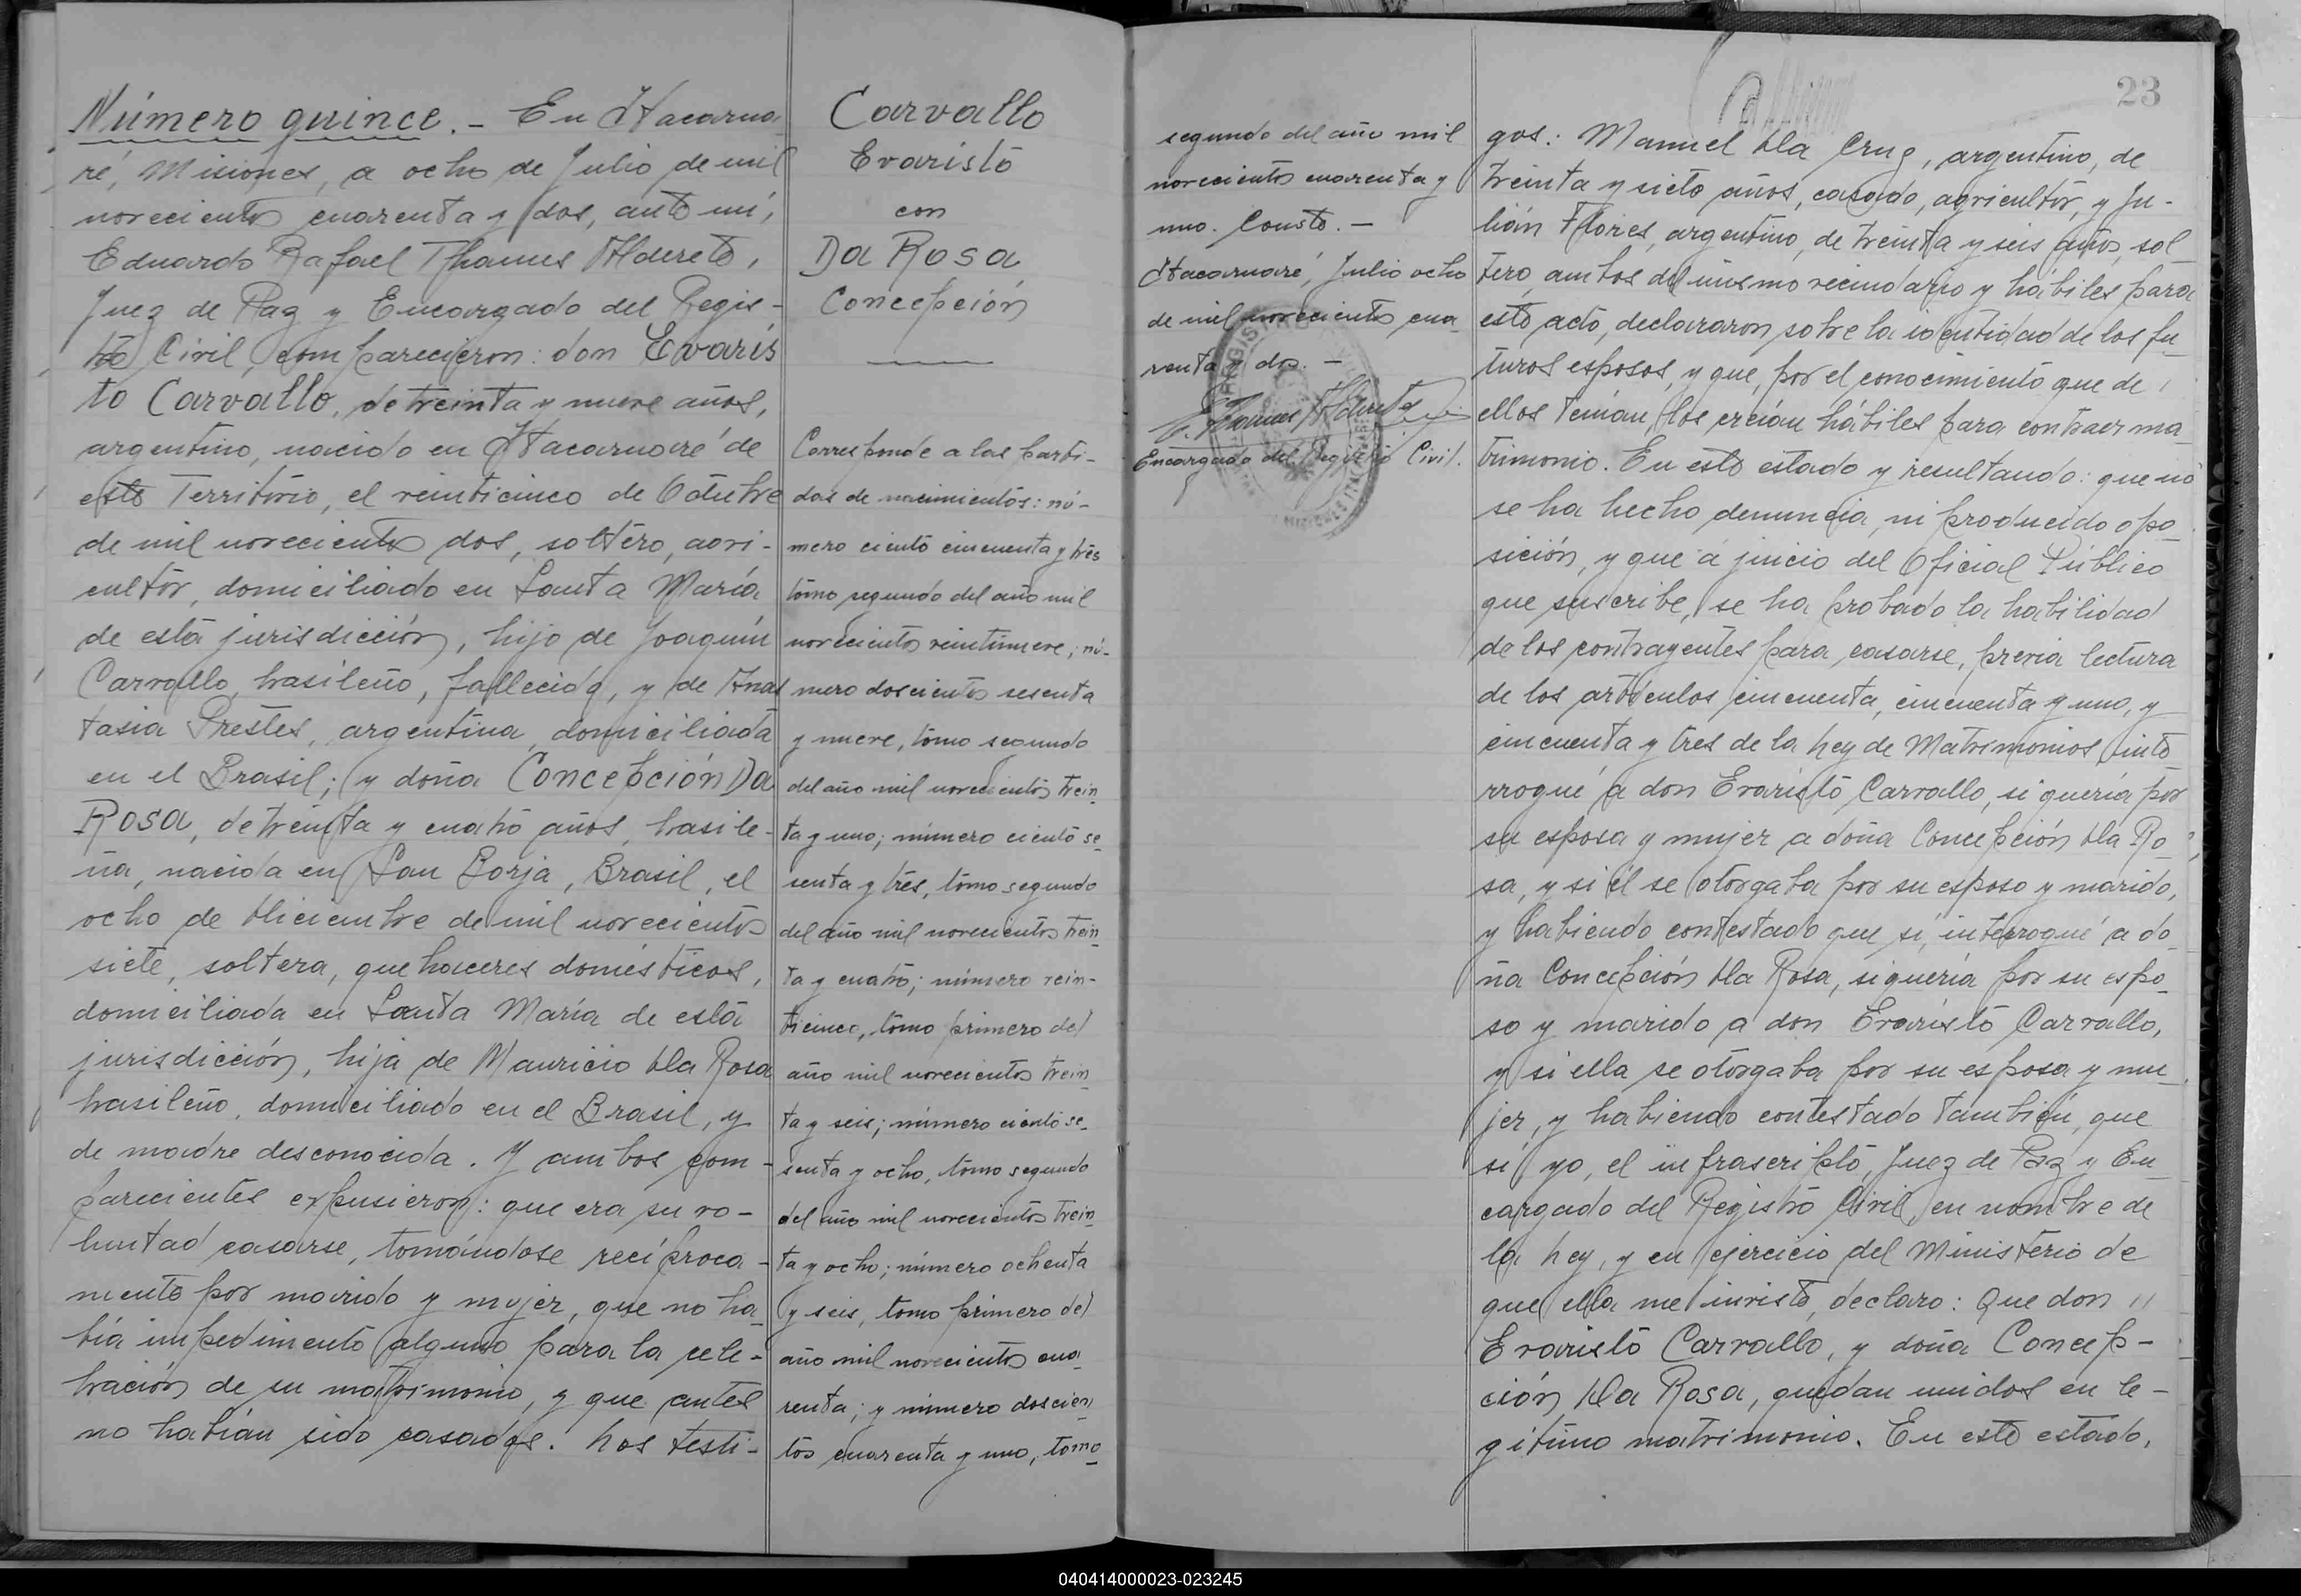 Número quince. - En Itacarua
ré, Misiones, a ocho de Julio de mil
novecientos cuarenta y dos, ante mí,
Eduardo Rafael Thames Alderete,
Juez de Paz y Encargado del Regis-
tro Civil, comparecieron: don Evaris
to Carvallo, de treinta y nueve años,
argentino, nacido en Itacaruaré de
este Territorio, el veinticinco de Octubre
de mil novecientos dos, soltero, agri-
cultor, domiciliado en Santa María
de esta jurisdicción, hijo de Joaquín
Carvallo, brasileño, fallecido, y de Anas
tasia Prestes, argentina, domiciliada
en el Brasil; y doña Concepción Da
Rosa, de treinta y cuatro años, brasile-
ña, nacida en San Borja, Brasil, el
ocho de Diciembre de mil novecientos
siete, soltera, quehaceres domésticos,
domiciliada en Santa María de esta
jurisdicción, hija de Mauricio Da Rosa
brasileño, domiciliado en el Brasil, y
de madre desconocida. Y ambos com-
parecientes expusieron: que era su vo-
luntad casarse, tomándose recíproca-
mente por marido y mujer, que no ha
bía impedimento alguno para la cele-
bración de su matrimonio, y que antes
no habían sido casados. Los testi-
Carvallo
Evaristo
con
Da Rosa
Concepción
Corresponde a las parti-
das de nacimientos: nú-
mero ciento cincuenta y tres
tomo segundo del año mil
novecientos veintinueve; nú-
mero doscientos sesenta
y nueve, tomo segundo
del año mil novecientos trein
ta y uno; número ciento se_
senta y tres, tomo segundo
del año mil novecientos trein
ta y cuatro; número vein-
ticinco, tomo primero del
año mil novecientos trein
ta y seis; número ciento se_
senta y ocho, tomo segundo
del año mil novecientos trein
ta y ocho; número ochenta
y seis, tomo primero del
año mil novecientos cua
renta; y número doscien
tos cuarenta y uno, tomo
segundo del año mil
novecientos cuarenta y
uno. Conste. -
Itacaruaré, Julio ocho
de mil novecientos cua
renta y dos. -
E. Thames Alderete
Encargado del Registro Civil.
23
gos: Manuel Da Cruz, argentino, de
treinta y siete años, casado, agricultor, y Ju-
lián Flores, argentino, de treinta y seis años, sol_
tero, ambos del mismo vecindario y hábiles para
este acto, declararon sobre la identidad de los fu_
turos esposos, y que, por el conocimiento que de
ellos tenían, los creían hábiles para contraer ma_
trimonio. En este estado y resultando: que no
se ha hecho denuncia, ni producido opo_
sición, y que a juicio del Oficial Público
que suscribe, se ha probado la habilidad
de los contrayentes para casarse, previa lectura
de los artículos cincuenta, cincuenta y uno, y
cincuenta y tres de la Ley de Matrimonios, inte
rrogué a don Evaristo Carvallo, si quería por
su esposa y mujer a doña Concepción Da Ro_
sa, y si él se otorgaba por su esposo y marido,
y habiendo contestado que sí, interrogué a do_
ña Concepción Da Rosa, si quería por su espo_
so y marido a don Evaristo Carvallo,
y si ella se otorgaba por su esposa y mu_
jer, y habiendo contestado también, que
sí, yo, el infrascripto, Juez de Paz y En_
cargado del Registro Civil, en nombre de
la Ley, y en ejercicio del Ministerio de
que ella me inviste, declaro: Que don "
Evaristo Carvallo, y doña Concep-
ción Da Rosa, quedan unidos en le-
gítimo matrimonio. En este estado,
040414000023-023245